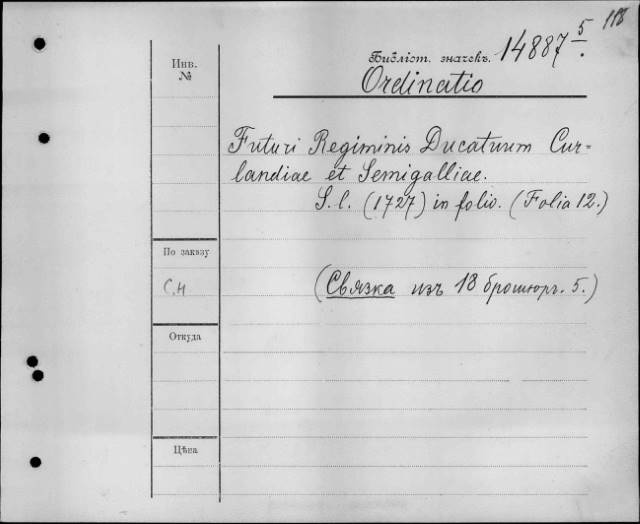 118
Инв.
№
Библіот. значекъ. 14887 5/.
Ordinatio
Futuri Regiminis Ducatuum Cur=
landiae et Semigalliae.
S. l. (1727) in folio. (Folia 12.)
По заказу
С.н
(Связка изъ 18 брошюръ. 5.)
Откуда
Цѣна